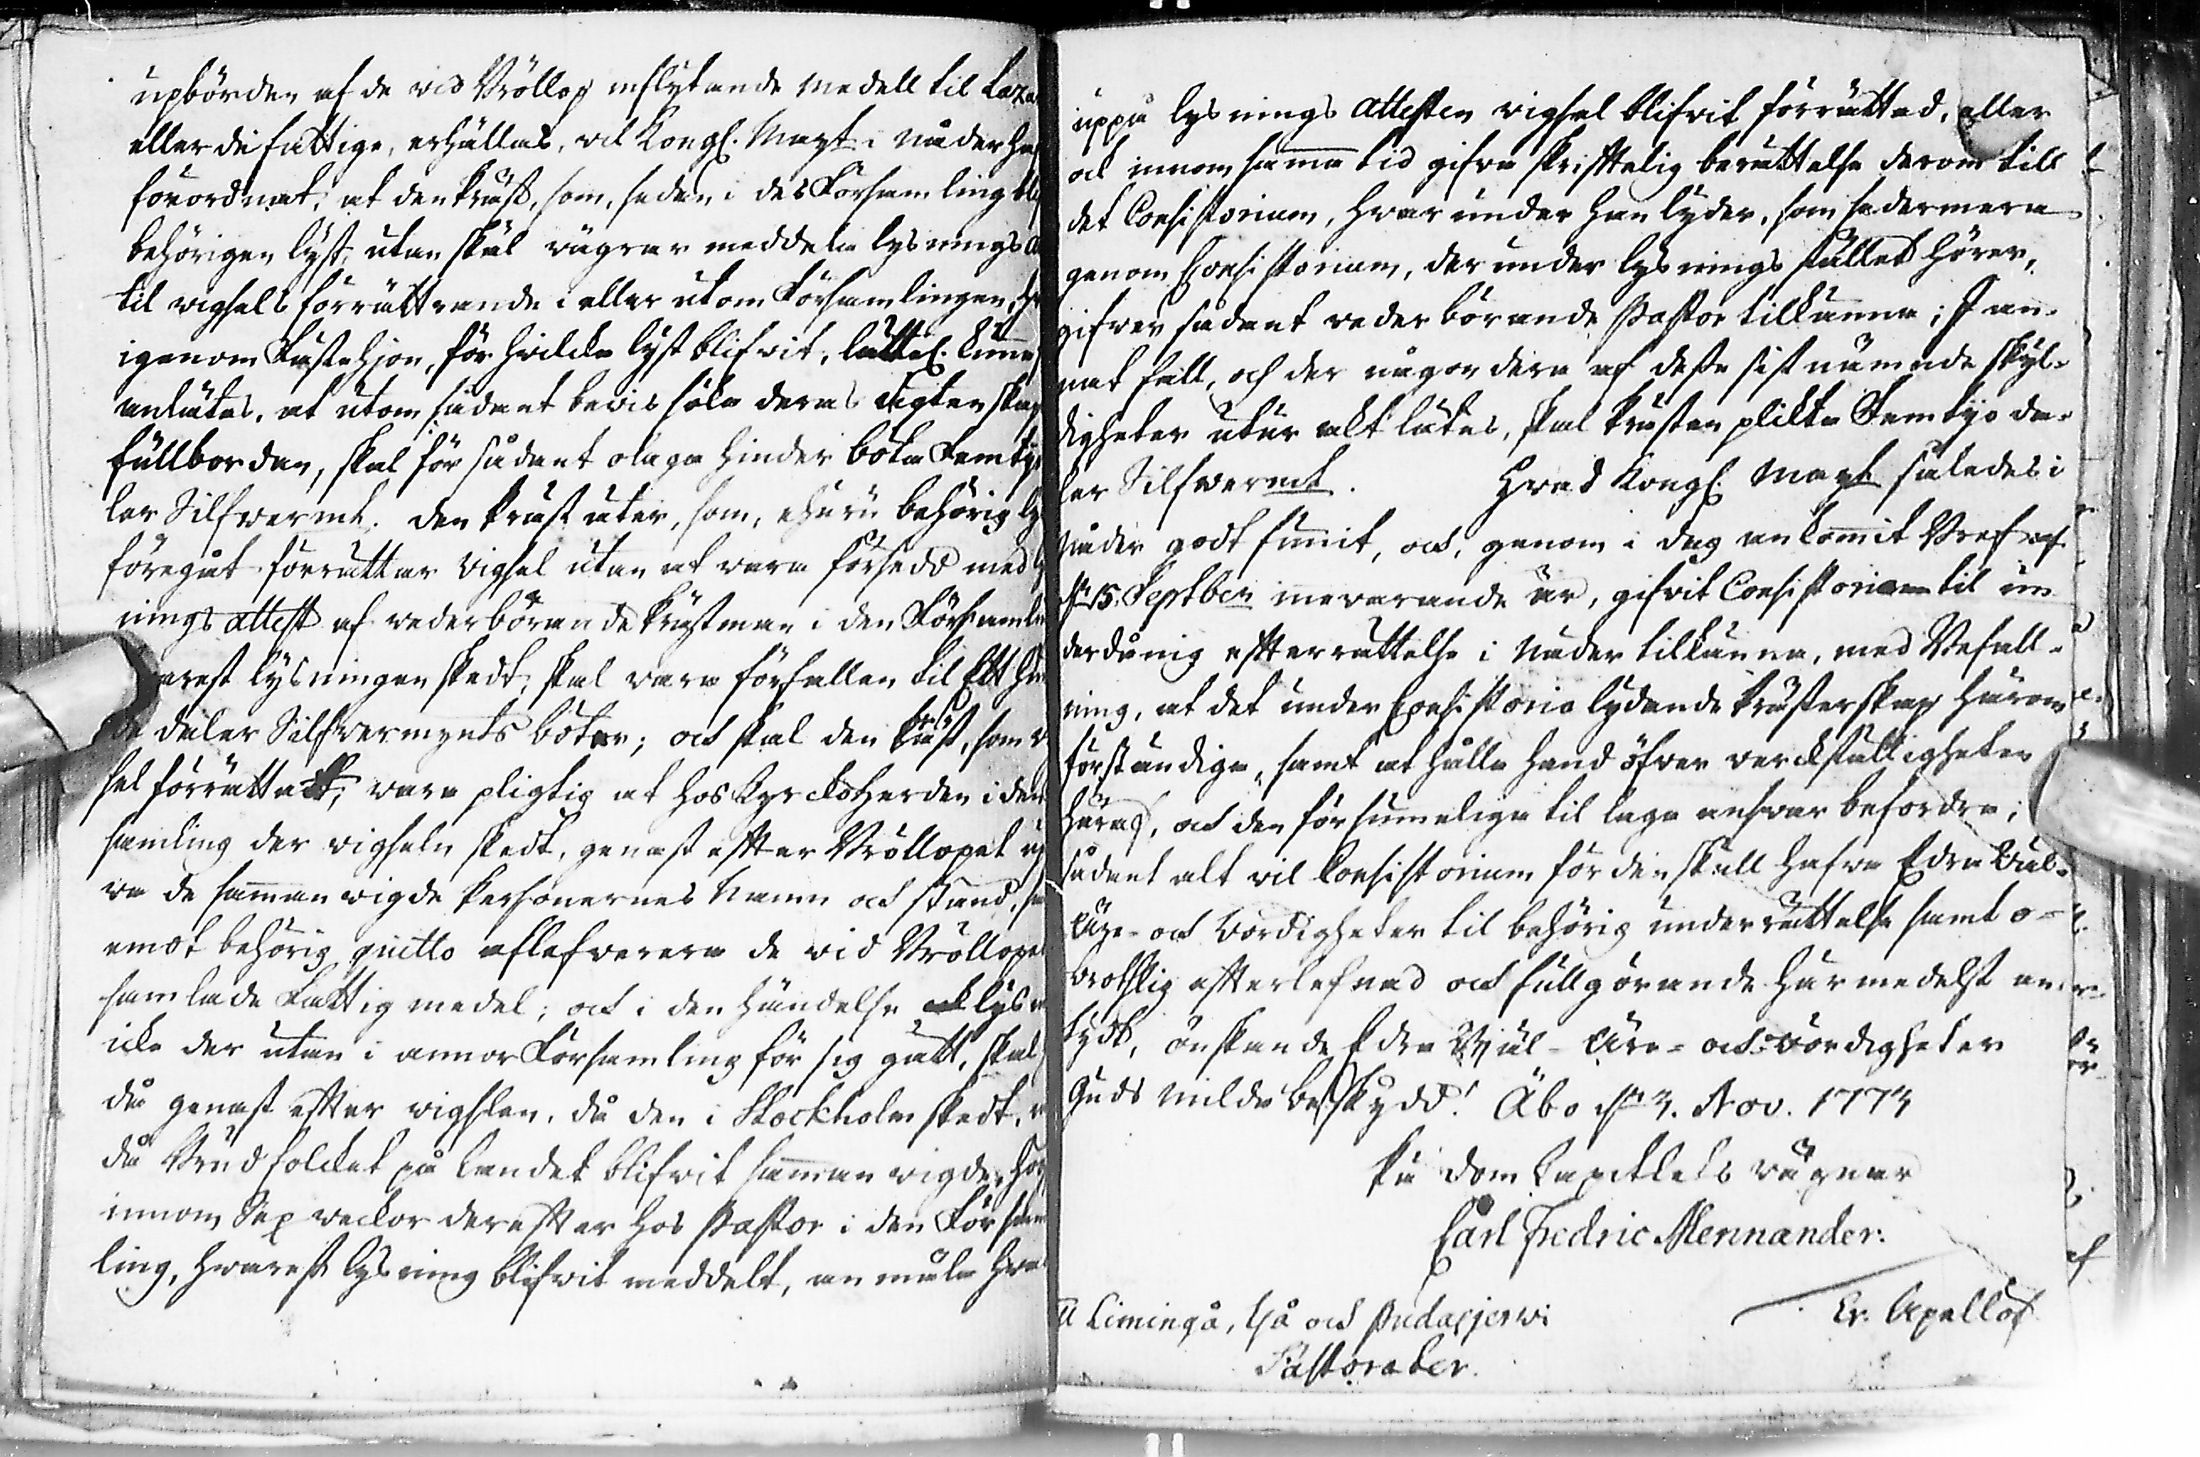 upbörden af de wid Bröllop inflytande medell til Laza
eller de fattige, erhållas, wil Kongl. Mayt i Nåder ha
förordnat, at den Präst, som, sedan i des Församling bl
behörigen lyst, utan skäl wägrar meddela lysnings a
til wigsels förrättande i eller utom Församlingen,
igenom Fästehjon, för hwilka lyst blifwit,
anlåtas, at utom sådant bewis söka deras ägtenskap
fullborden, skal för sådant olaga hinder böta Femtijo
ler Silfwermt. Den Präst åter, som, ehuru behörig ly
föregåt förrättar wigsel utan at wara försedd med ly
nings attest af wederbörande Prästman i den Församl
arest lysningen skedt, skal wara förfallen til Ett hun
de daler Silfwermynts böter; och skal den Präst, som w
sel förrättat, wara pligtig at hos Kyrckoherden i den
samling der wigseln skedt, genast efter Bröllopet up
wa de samman wigde Personernes Namn och stånd, sa
emot behörig quitto aflefwerera de wid Bröllopet
samlade Fattig medel; och i den händelse lysn
icke der utan i annor Församling för sig gått, skal
då genast efter wigslen, då den i Stockholm skedt,
då Brudfolcket på Landet blifwit samman wigde,
innom Sex weckor derefter hos Pastor i den Försam
ling, hwarest lysning blifwit meddelt, anmäla hwa
uppå lysnings attesten wigsel blifwit förrättad, eller
ock innom samma tid gifwa skriftelig berättelse derom till
det Consistorium, hwarunder han lyder, som sedermera
genom Consistorium, der under lysnings stället hörer,
gifwer sådant wederbörande Pastor tilkänna; I an-
nat fall, och der någondera af desse sist nämnde skyl-
digheter utur akt låtes, skal Prästen plickta Femtijo da-
ler Silfwermt. Hwad Kongl. Mayt således i
Nåder godt funnit, och, genom i dag ankommit Bref af
d. 15. Septber innewarande år, gifwit Consistorium til un
derdånig efterrättelse i Nåder tilkänna, med Befall-
ning, at det under Consistorio lydande Prästerskap härom
förständiga, samt at hålla hand öfwer werckställigheten
häraf, och den försumelige til laga answar befordra;
sådant alt wil Consistorium fördenskull hafwa Edra Wäl-
Äre- och Wördigheter til behörig underrättelse samt o-
brotslig efterlefnad och fullgörande härmedelst an-
tydt, önskande Edra Wäl- Äre- och Wördigheter
Guds milda beskydd! Åbo d. 3. Nov. 1773
På Dom Capitlets wägnar
Carl Fredric Mennander.
Er. Apellöf
Limingå, Ijå och Pudasjerwi
Pastorater.